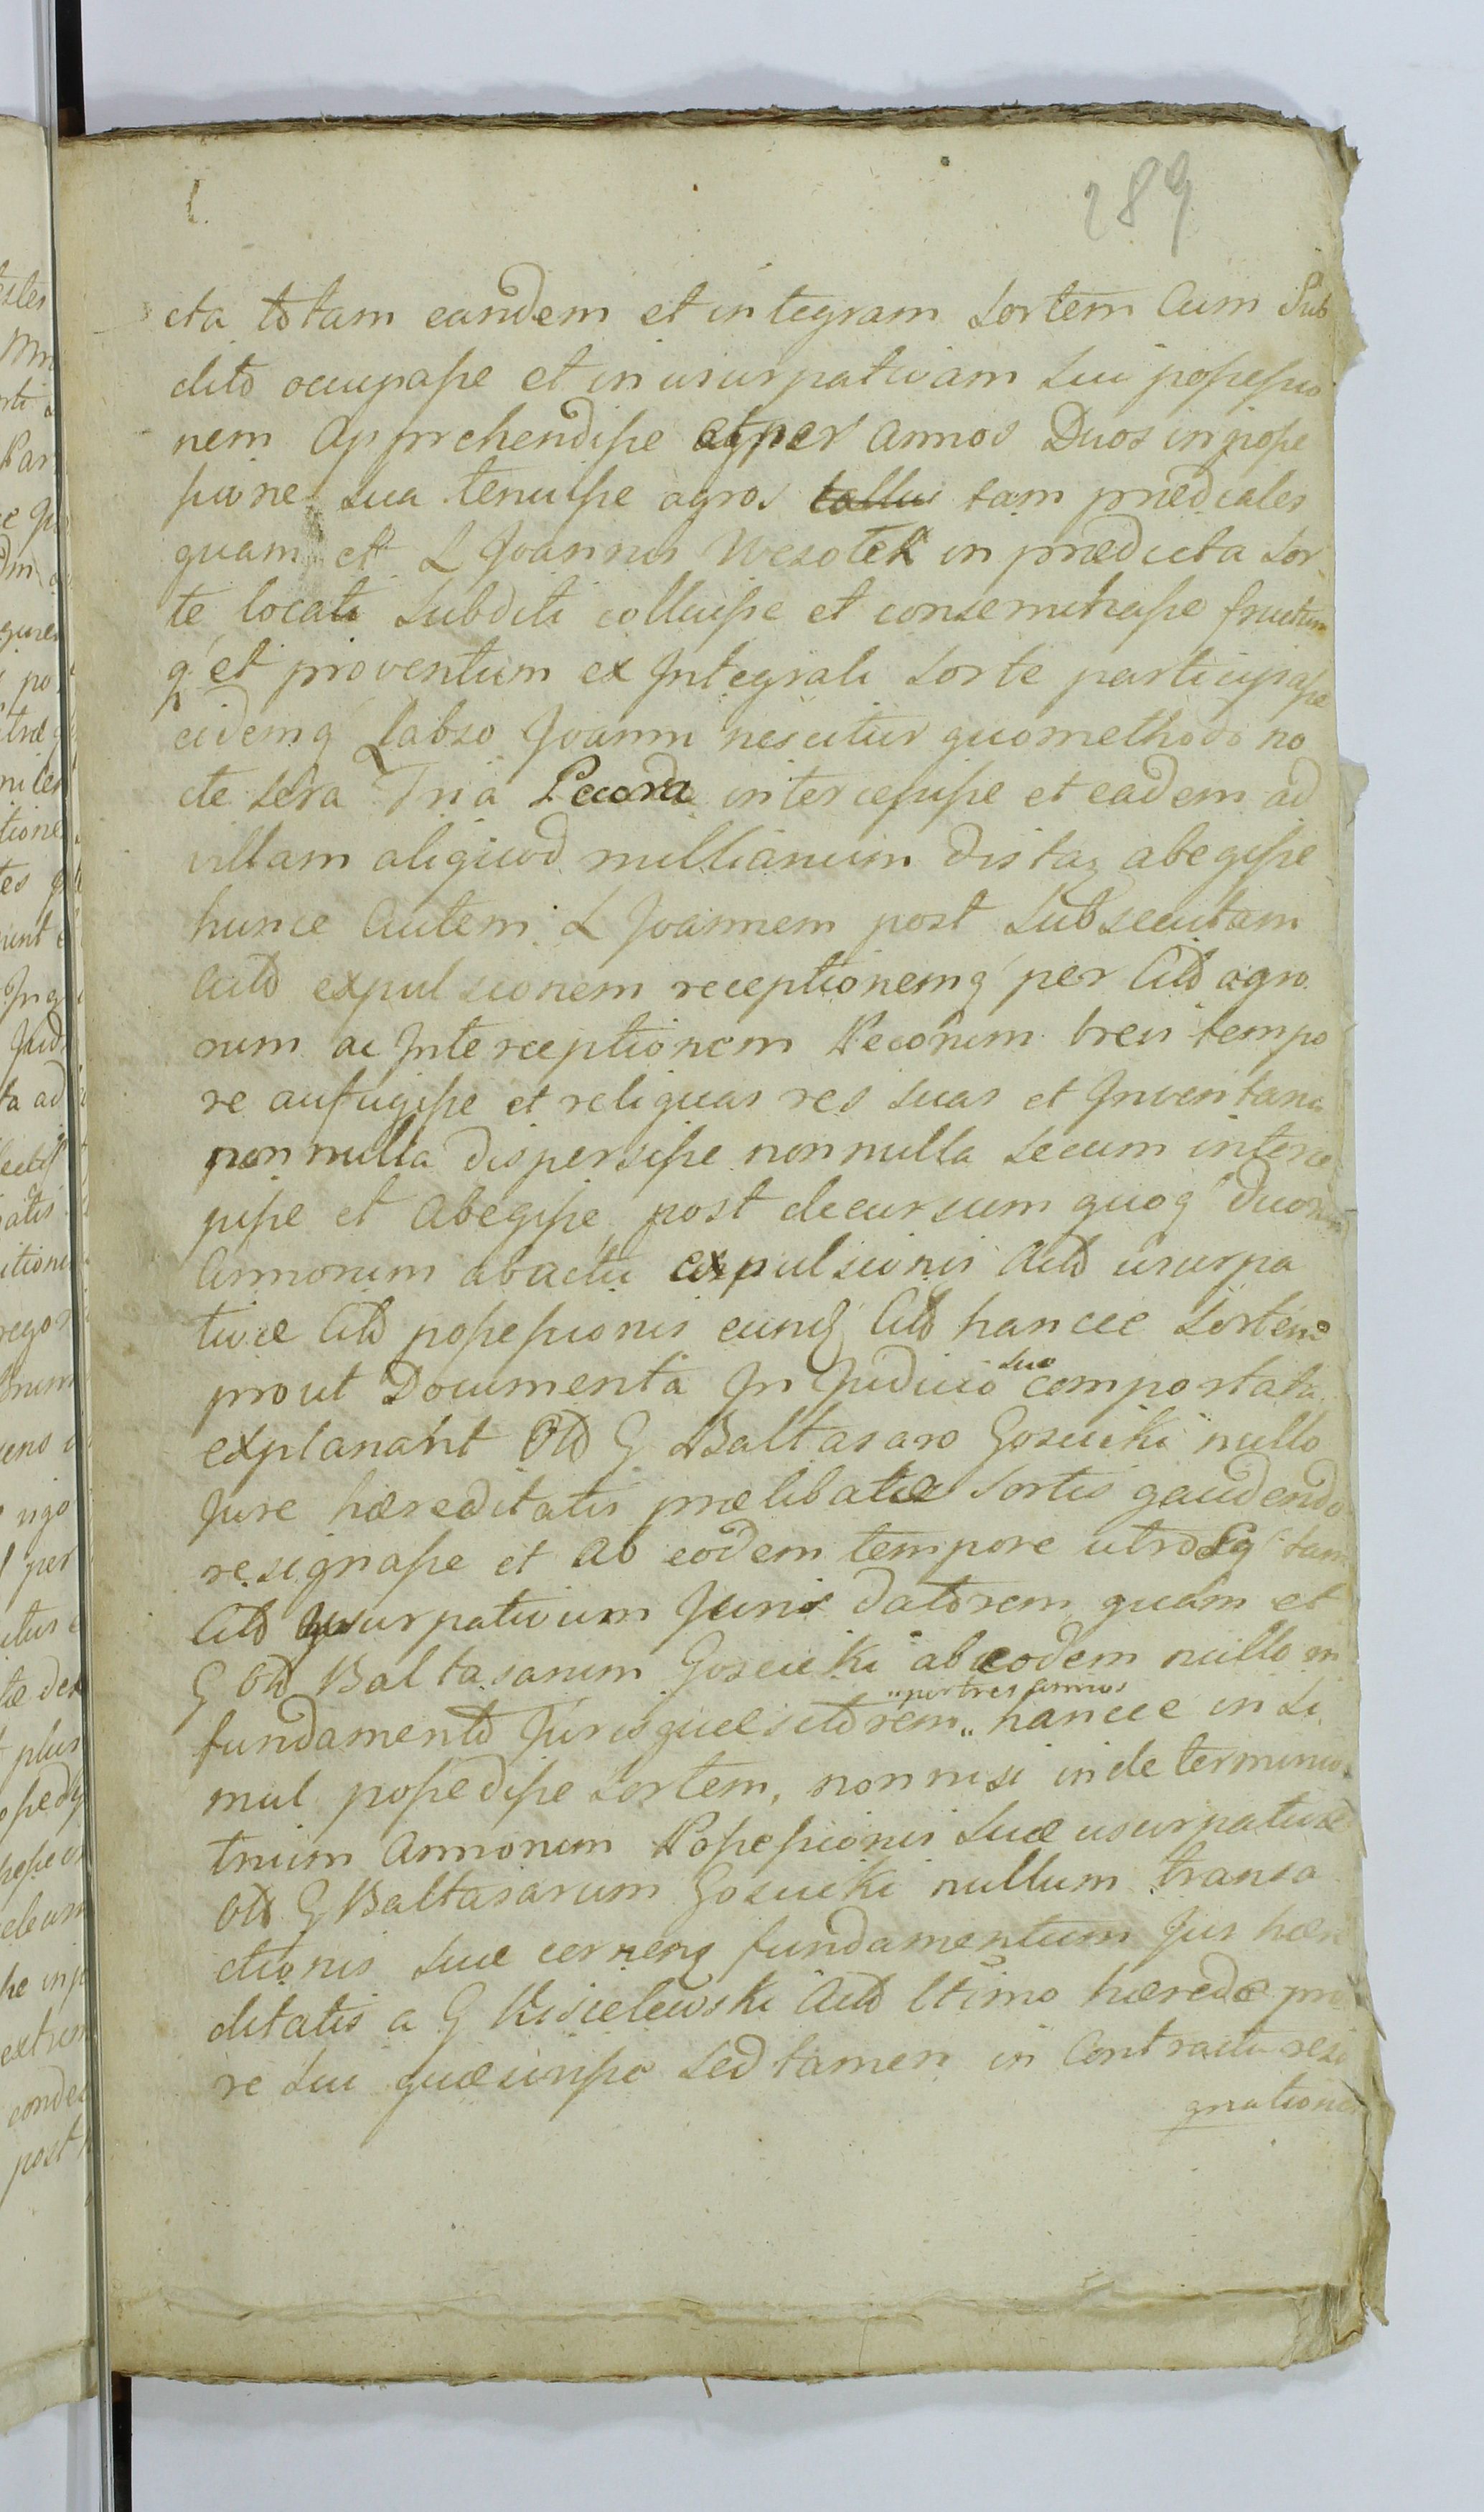 289
cta totam eandem et integram Sortem Cum Sub
dito occupasse et in usurpativam sui possessio
nem Apprehendisse et per annos Duos in posse
ssione sua tenuisse agros tam prædiales
quam et L Joannis Wesołek in prædicta Sor
te locati Subditi colluisse et conseminasse fructum
q' et proventum ex Integrali Sorte participasse
eidemq' Labso Joanni nescitur quo methodo no
cte sera Tria Pecora intercepisse et eadem ad
villam aliquod milliarium distan abegisse
hunce autem L Joannem post Subsecutam
Actd expulsionem receptionemq' per Citd agro
rum ac Interceptionem Pecorum brevi tempo
re aufugisse et reliquas res suas et Inventaria
non nulla dispersisse non nulla secum interce
pisse et Abegisse, post decursum quoq' duorum
Annorum ab actu expulsionis Actd usurpa
tivæ Citd possessionis eunq Citd hancce Sortem
prout Documenta In Judicio suo comportata
explanabt Obd G Baltasaro Gosucki nullo
Jure hæreditatis prælibatæ Sortis gaudendo
resignasse et ab eodem tempore utrosq' tam
Citd usurpativum Juris datorem quam et
G Obd Baltasarum Gosucki ab eodem nullo in
fundamento Juris quæsitorem „per tres annos„ hancce in Si
mul possedisse Sortem, non nisi in de terminio
trium Annorum Possessionis suæ usurpativæ
Obd G Baltasarum Gosucki nullum transa
ctionis suæ cernens fundamentum Jus hære
ditatis a G Kisielewski Actd ltimo hærede pro
re sui quæsivisse sed tamen in Contractu resi
gnationis